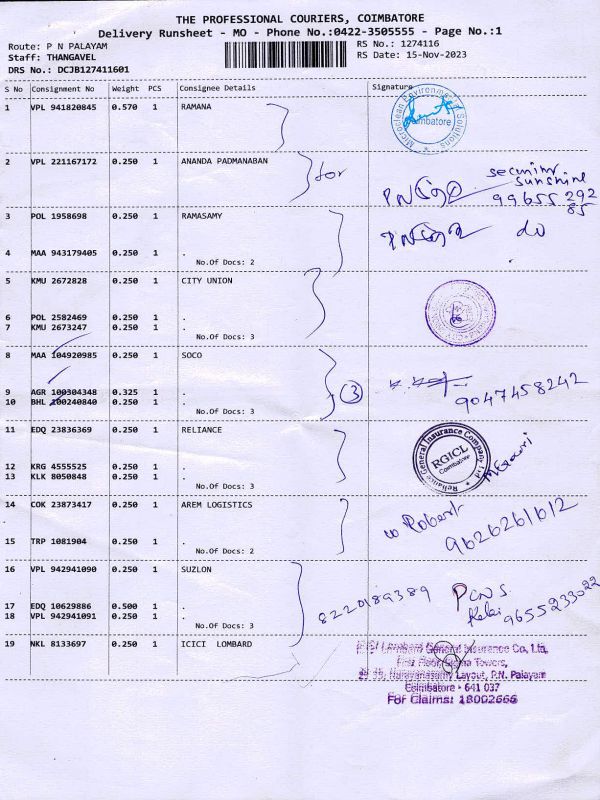 THE PROFESSIONAL COURIERS, COIMBATORE
Delivery Runsheet - MO - Phone No.:0422-3505555 - Page No.:1
Route: P N PALAYAM
Staff: THANGAVEL
DRS No.: DCJB127411601
RS No.: 1274116
RS Date: 15-Nov-2023
S No Consignment No Weight PCS Consignee Details Signature
1 VPL 941820845 0.570 1 RAMANA
Microclean Environmental Solutions
Coimbatore
2 VPL 221167172 0.250 1 ANANDA PADMANABAN
for
security
sunshine
99655 292
85
3 POL 1958698 0.250 1 RAMASAMY
do
4 MAA 943179405 0.250 1 .
No.Of Docs: 2
5 KMU 2672828 0.250 1 CITY UNION
6 POL 2582469 0.250 1 .
7 KMU 2673247 0.250 1 .
No.Of Docs: 3
8 MAA 104920985 0.250 1 SOCO
9 AGR 100304348 0.325 1 .
10 BHL 100240840 0.250 1 .
No.Of Docs: 3
3
9047458242
11 EDQ 23836369 0.250 1 RELIANCE
Reliance General Insurance Company Ltd
RGICL
Coimbatore
12 KRG 4555525 0.250 1 .
13 KLK 8050848 0.250 1 .
No.Of Docs: 3
14 COK 23873417 0.250 1 AREM LOGISTICS
Robert
9626261612
15 TRP 1081904 0.250 1 .
No.Of Docs: 2
16 VPL 942941090 0.250 1 SUZLON
8220189389
9655233022
17 EDQ 10629886 0.500 1 .
18 VPL 942941091 0.250 1 .
No.Of Docs: 3
19 NKL 8133697 0.250 1 ICICI LOMBARD
Lombard General Insurance Co, Ltd,
First Floor, Sigma Towers,
Narayanasamy Layout, P.N. Palayam
Coimbatore - 641 037
For Claims: 18002666